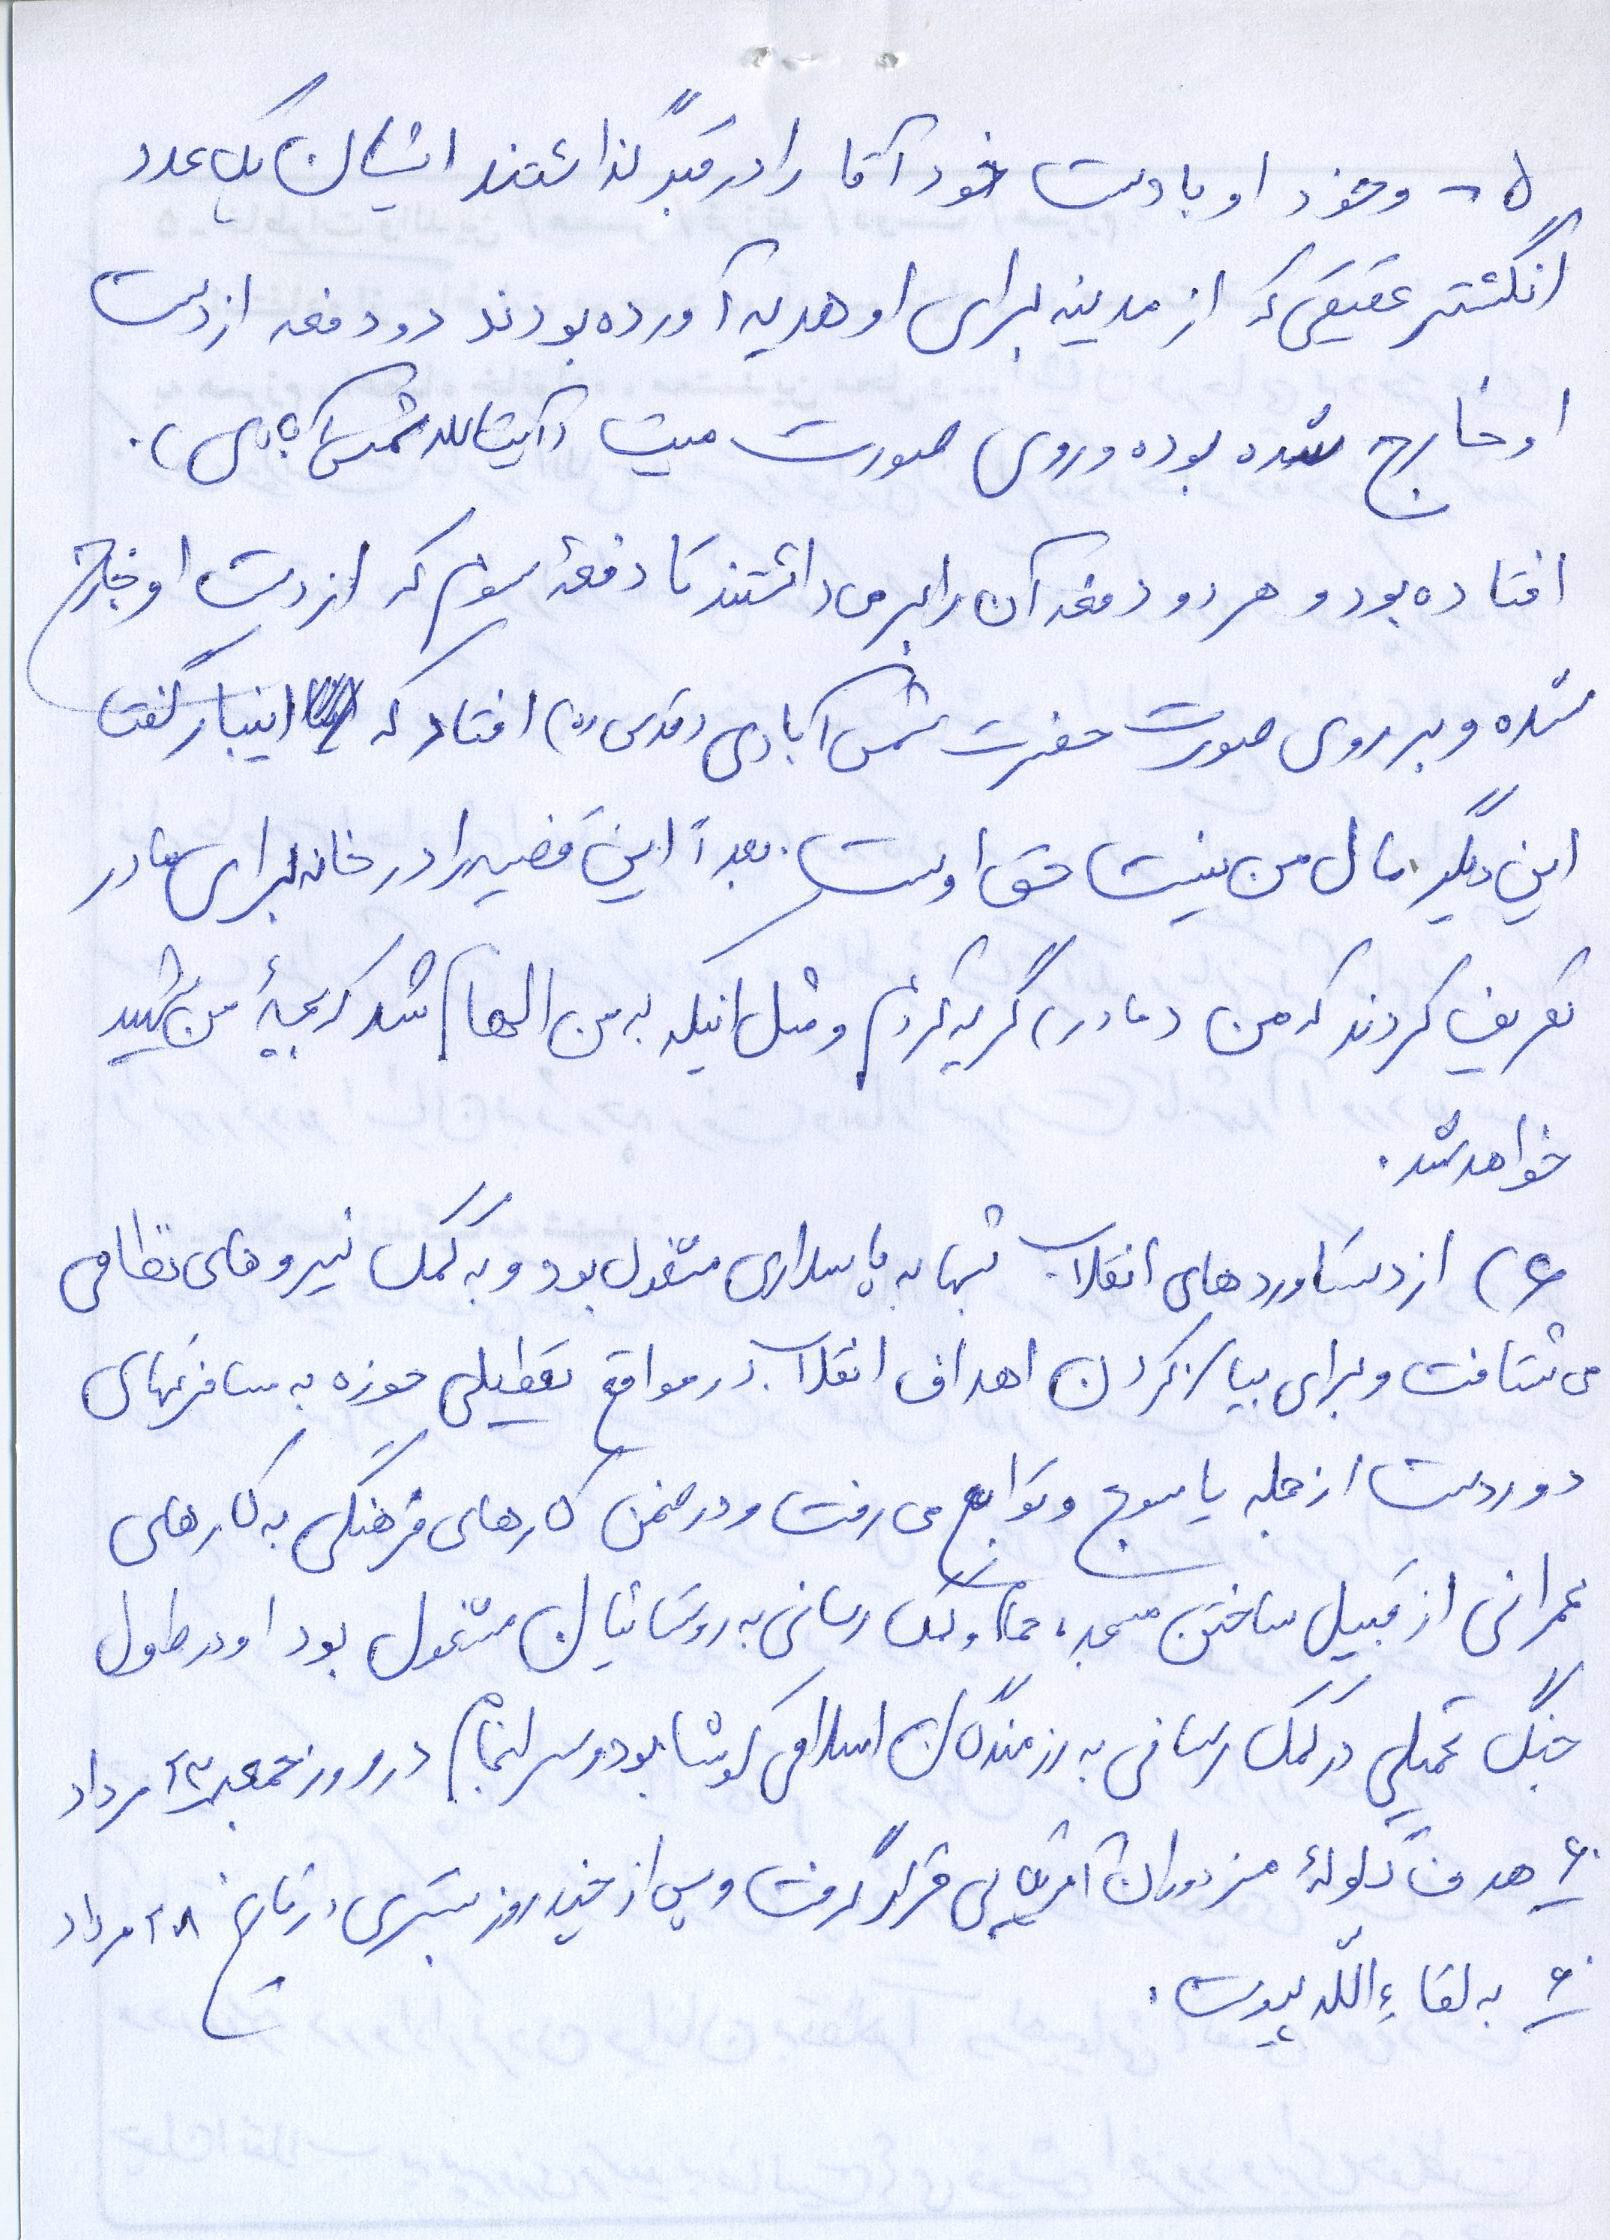 ۵ – و خود او با دست خود آقا را در قبر گذاشتند ایشان یک عدد
انگشتر عقیقی که از مدینه برای او هدیه آورده بودند دو دفعه از دست
او خارج شده بوده و روی صورت میت (آیت الله شمس آبادی).
افتاده بود و هر دو دفعه آن را بر می داشتند تا دفعهٔ سوم که از دست او خارج
شده و بر روی صورت حضرت شمس آبادی (قدس ره) افتاد که اینبار گفت
این دیگر مال من نیست حق اوست. بعداً این قضیه را در خانه برای مادر
تعریف کردند که من (مادر) گریه کردم و مثل اینکه به من الهام شد که بچهٔ من شهید
خواهد شد.
۶) از دستاوردهای انقلاب شبها به پاسداری مشغول بود و به کمک نیروهای نظامی
می شتافت و برای بیان کردن اهداف انقلاب در مواقع تعطیلی حوزه به مسافرتهای
دور دست از جمله یاسوج و توابع می رفت و در ضمن کارهای فرهنگی به کارهای
عمرانی از قبیل ساختن مسجد، حمام و کمک رسانی به روستائیان مشغول بود او در طول
جنگ تحمیلی در کمک رسانی به رزمندگان اسلامی کوشا بود و سرانجام در روز جمعه ۲۳ مرداد
۶۰ هدف گلولهٔ مزدوران آمریکایی قرار گرفت و پس از چند روز بستری در تاریخ ۲۸ مرداد
۶۰ به لقاءِ اللّه پیوست.